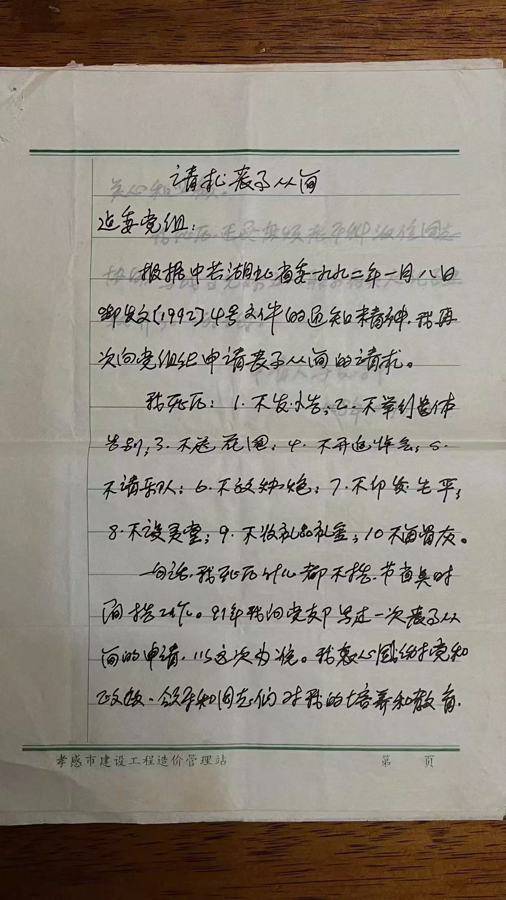 请求丧事从简
建委党组:
根据中共湖北省委一九九二年一月八日
鄂发文(1992)4号文件的通知精神,我再
次向党组织申请丧事从简的请求。
我死后:1.不发讣告;2.不举行遗体
告别;3.不送花圈;4.不开追悼会;5.
不请乐队;6.不放鞭炮;7.不印发生平;
8.不设灵堂;9.不收礼品礼金;10不留骨灰。
一句话,我死后什么都不搞.节省点时
间搞工作。91年我向党支部写过一次丧事从
简的申请,以这次为准。我衷心感谢党和
政府、领导和同志们对我的培养和教育,
孝感市建设工程造价管理站 第 页